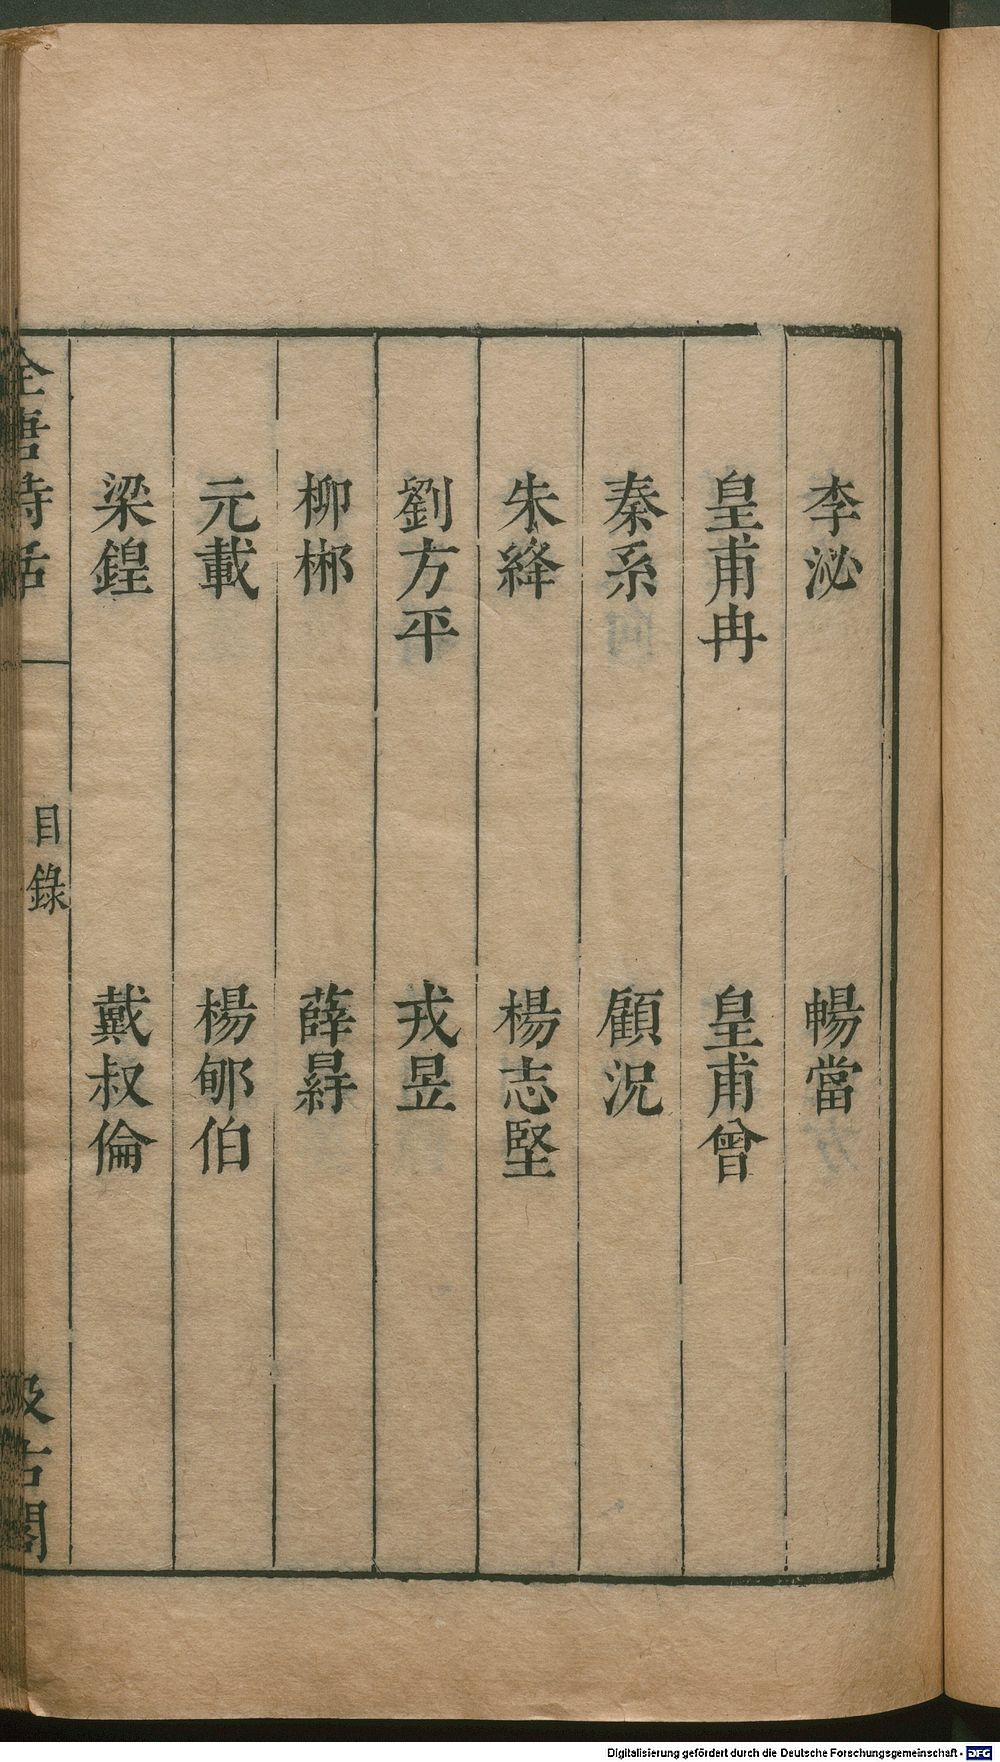 李泌 暢當
皇甫冉 皇甫曾
秦系 顧況
朱絳 楊志堅
劉方平 戎昱
柳郴 薛㝷
元載 楊郇伯
梁鍠 戴叔倫
全唐詩話 目錄 汲古閣
Digitalisierung gefördert durch die Deutsche Forschungsgemeinschaft - DFG